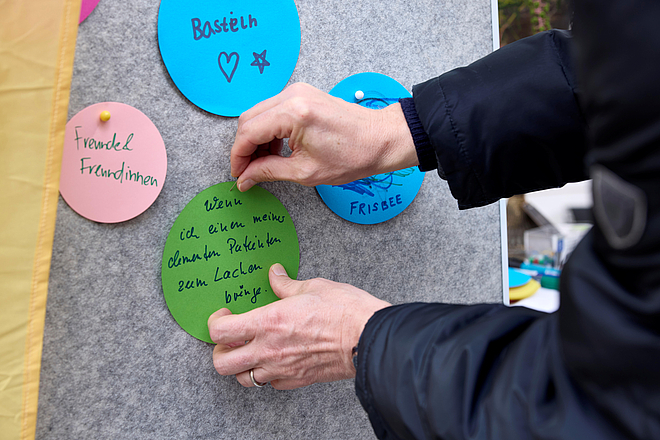 Basteln
Freunde &
Freundinnen
FRISBEE
Wenn
ich einen meiner
dementen Patienten
zum Lachen
bringe.